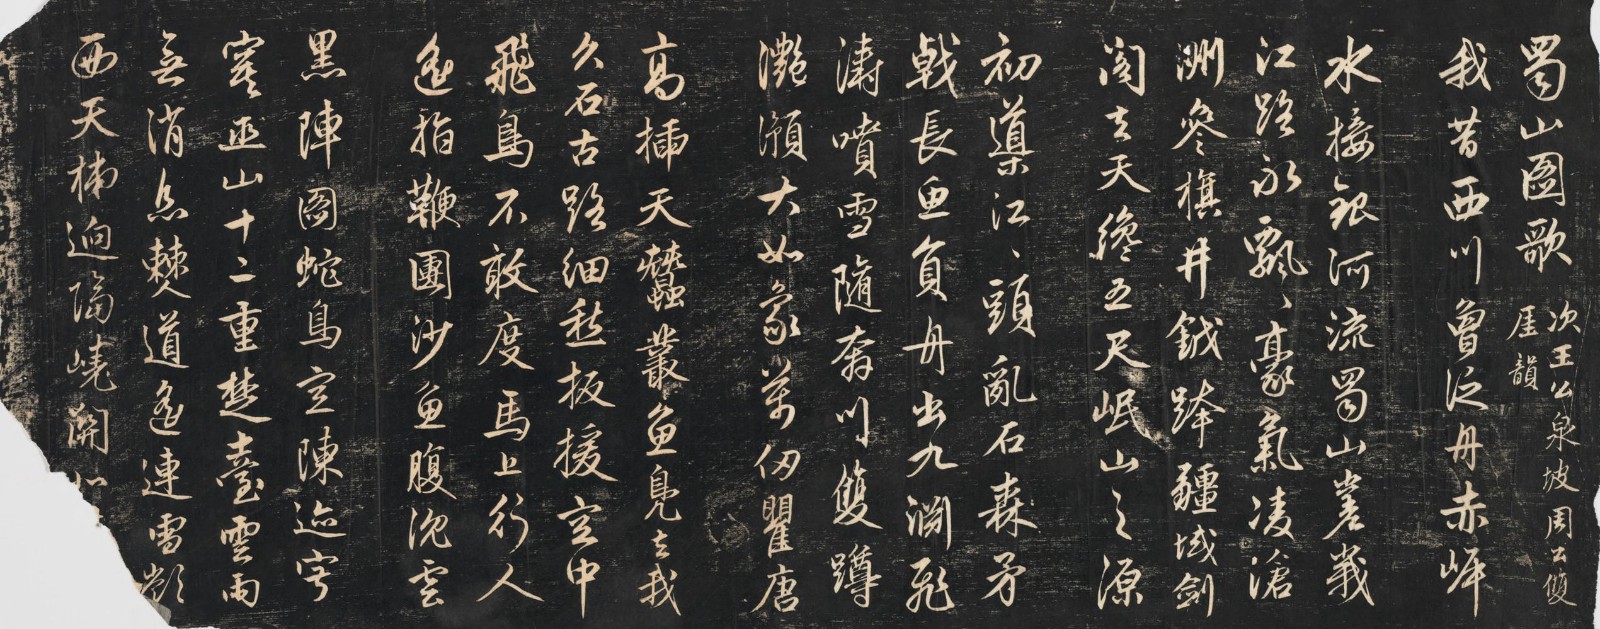 蜀山圖歌 次王公泉坡周公雙
厓韻
我昔西川曾泛舟赤岸
水接銀河流蜀山嵳峩
江路永飄〻豪氣凌滄
洲參旗井鉞跨疆域劍
閣去天纔五尺岷山之源
初導江〻頭亂石森矛
戟長魚負舟出九淵飛
濤噴雪隨奔川雙蹲
灩澦大如象萬仞瞿唐
高插天蠶叢魚鳧去我
久石古路細愁扳援空中
飛鳥不敢度馬上行人
遙指鞭團沙魚腹沈雲
黑陣圖蛇鳥空陳迹窅
冥巫山十二重楚臺雲雨
無消息僰道遙連雪嶺
西天梯迥隔嶢關